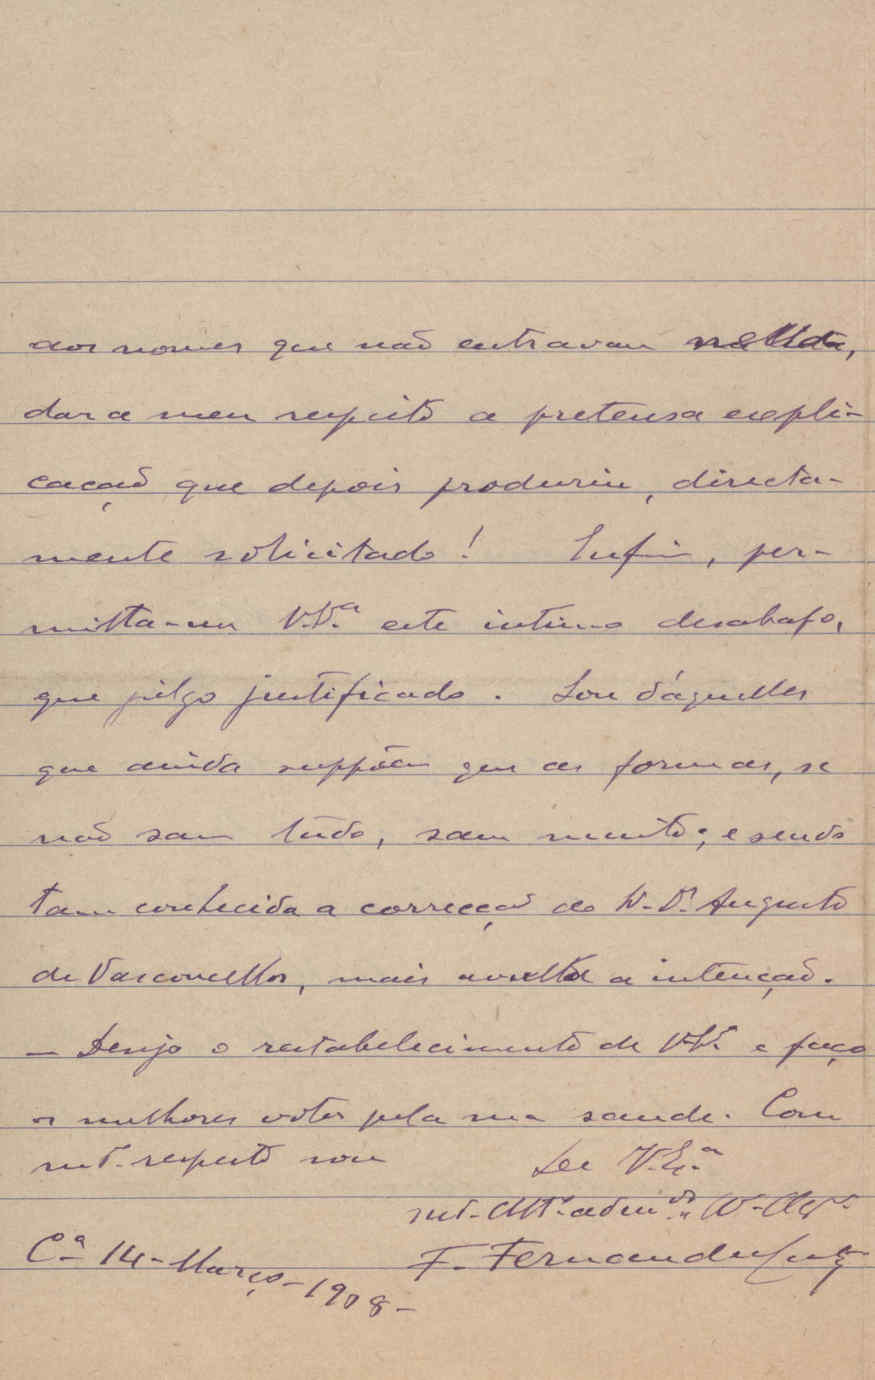 aos nomes que não entravam na lista,
dar a meu respeito a pretensa expli-
cação que depois produziu, directa-
mente solicitado! Enfim, per-
mitta-me V. Ex.ª este intimo desabafo,
que julgo justificado. Sou d'aquelles
que ainda suppõem que as formas, se
não sam tudo, sam muito; e sendo
tam conhecida a correcção do Dr. Augusto
de Vasconcellos, mais avulta a intenção.
— Desejo o restabelecimento de V. Ex.ª e faço
os melhores votos pela sua saude. Com
mt.º respeito sou De V. Ex.ª
mt.º Att.º admdor
Cª 14-Março-1908- F. Fernandes Costa